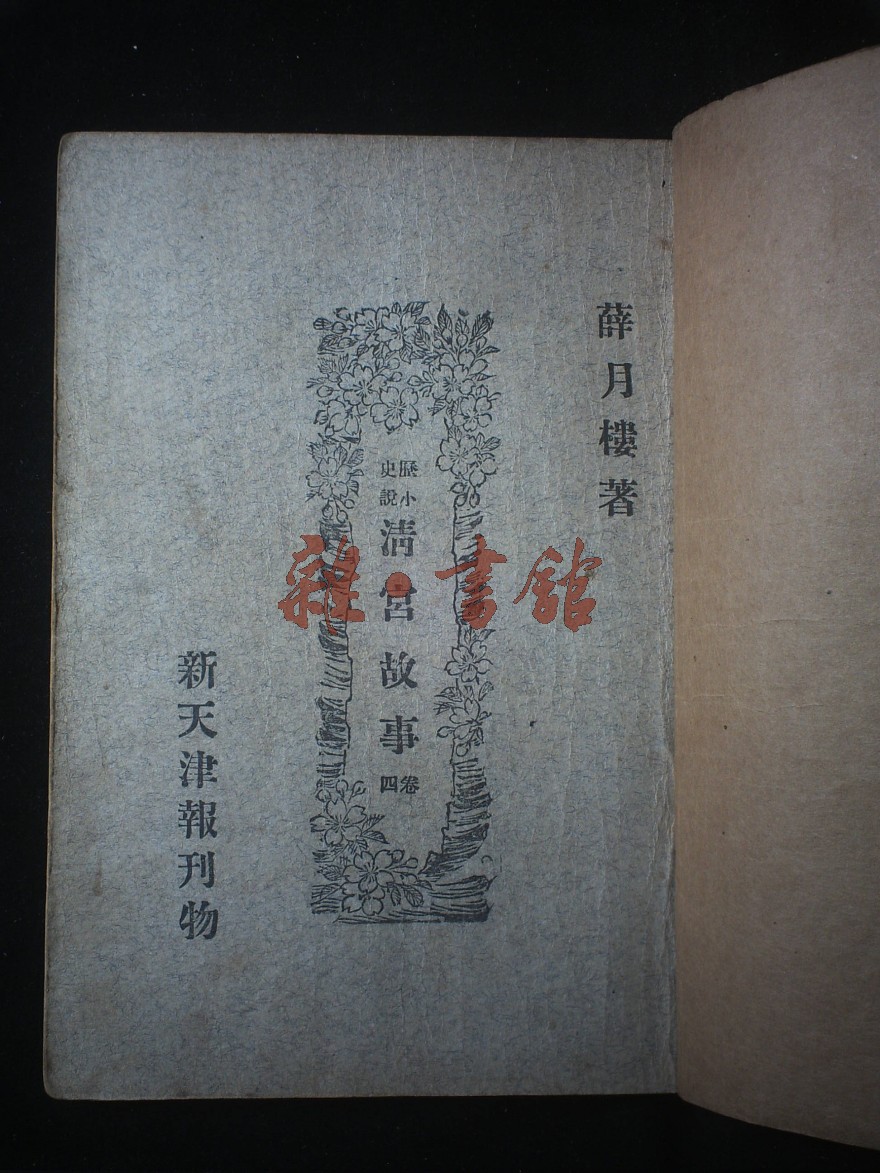 薛月樓著
歷史
小說
清宮故事
卷四
新天津報刊物
雜·書館